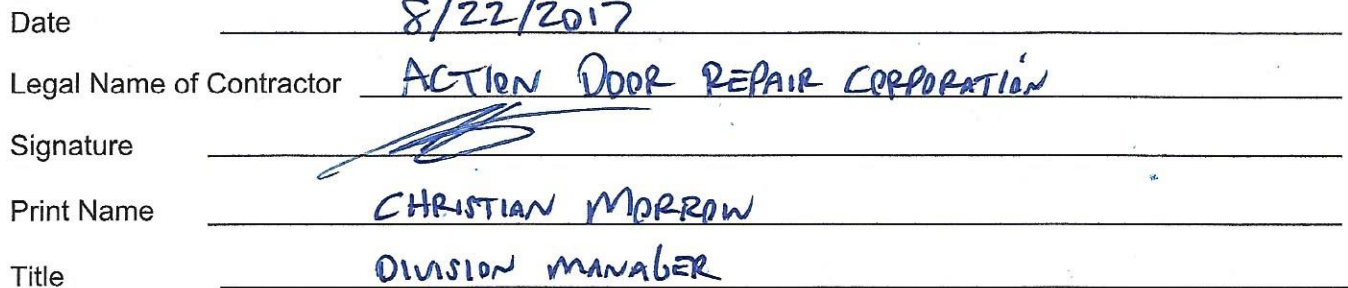 Date 8/22/2017
Legal Name of Contractor ACTION DOOR REPAIR CORPORATION
Signature
Print Name CHRISTIAN MORROW
Title DIVISION MANAGER